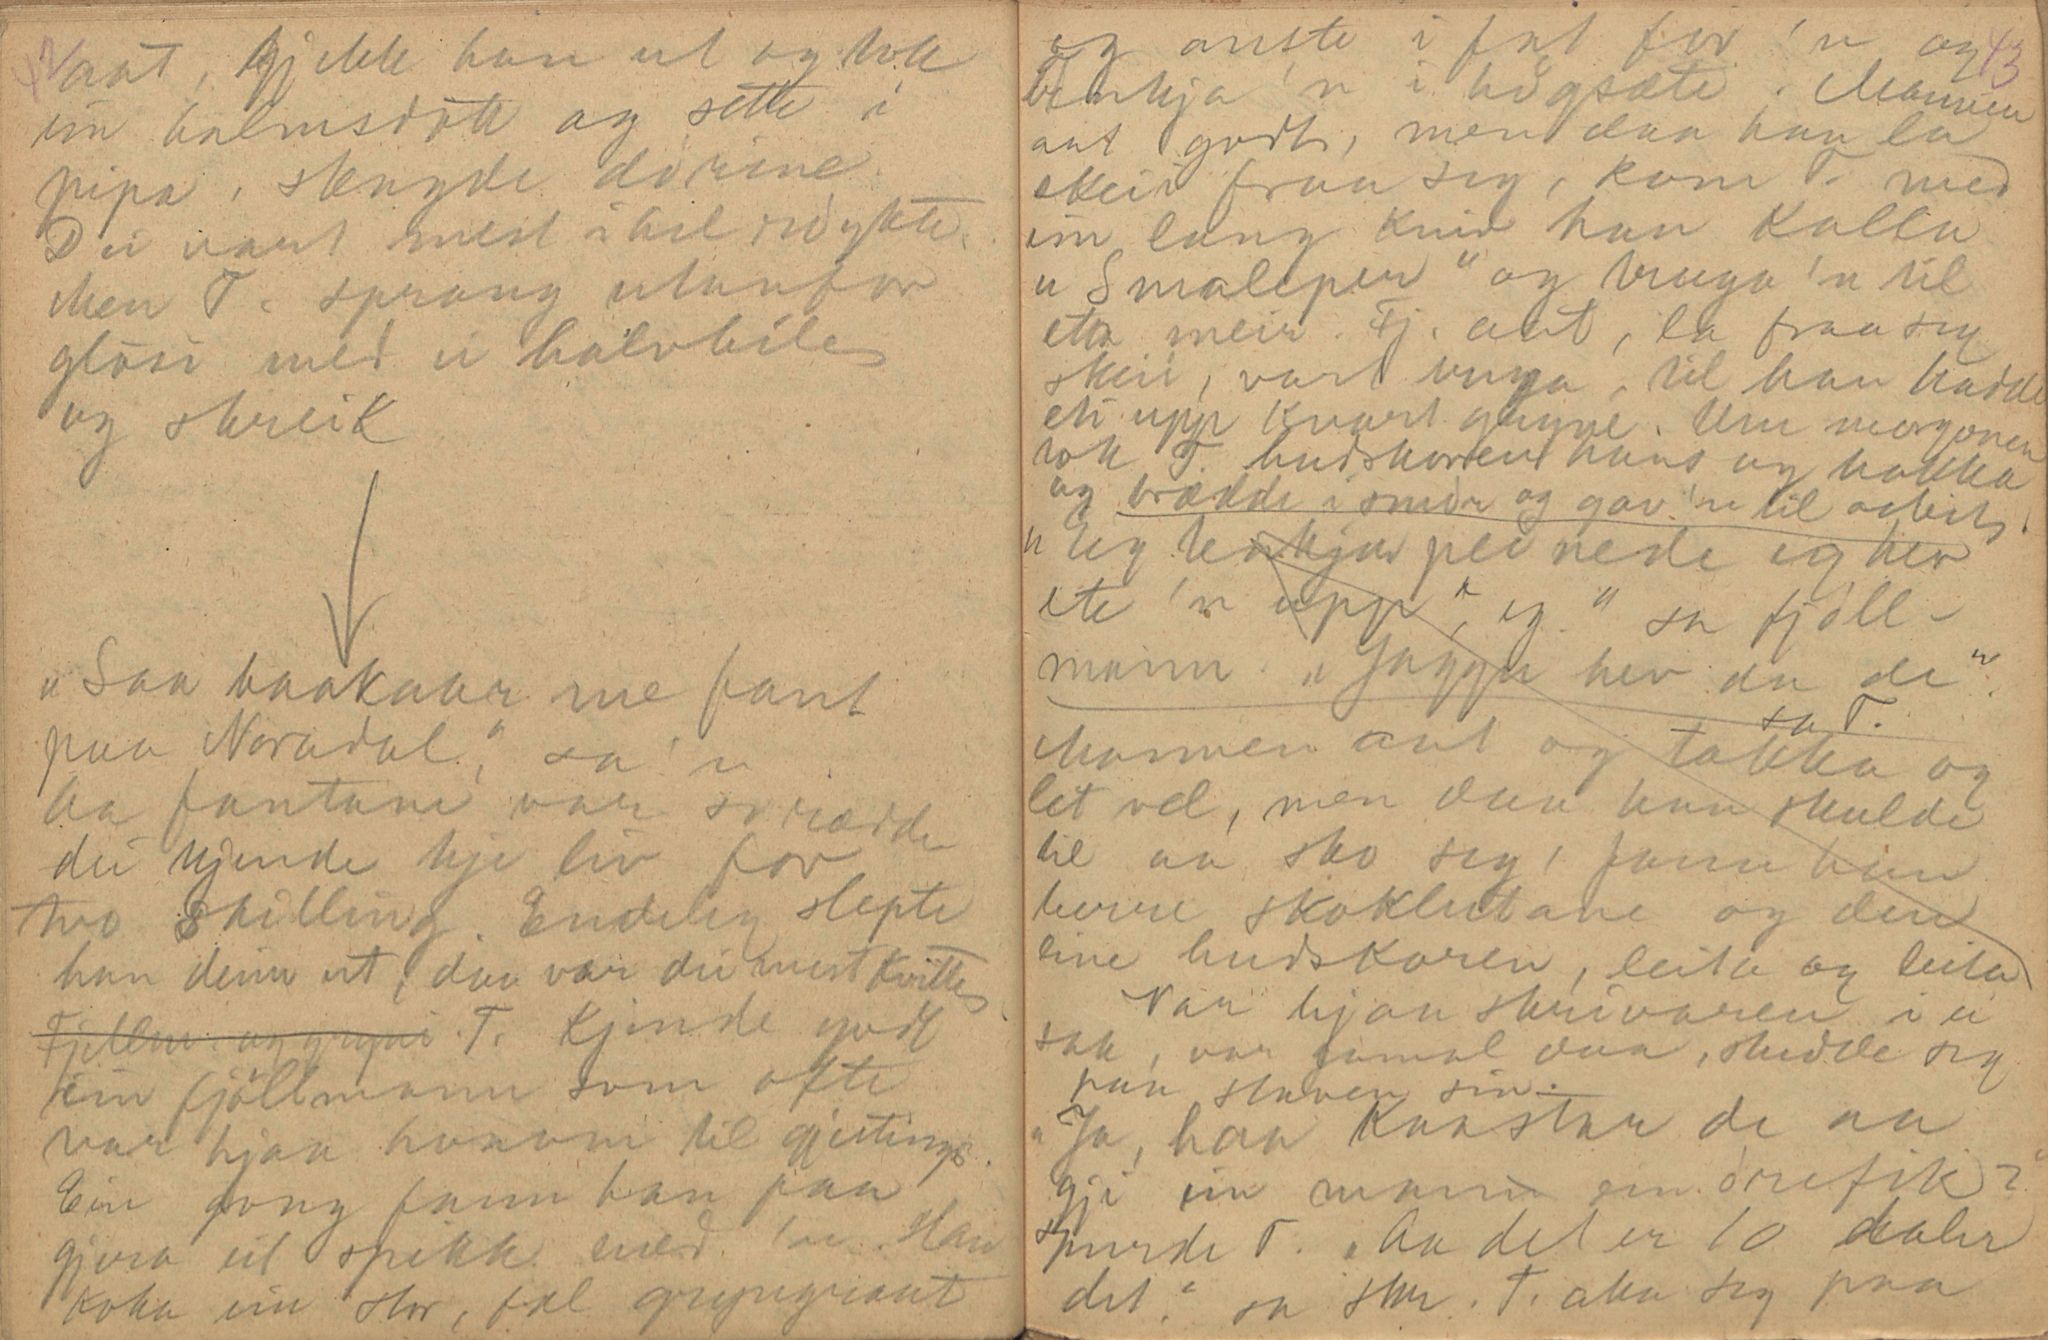 42
aat, gjekk han ut og tok
ein halmsdott og sette i
pipa, stengde dörine.
Dei vart mest ihel röykte.
Men T. sprang utanfor
glöse med ei halvbile
og skreik
"Saa baakaar me fant
paa Noradal," sa 'n
Aa fantane var so rædde
dei kjende kje liv for
two skilling. Endeleg slepte
han deim ut, daa var dei mest kvitte
T. kjende godt
ein fjöllmann som ofte
var hjaa honom til gjesting.
Ein gong fann han paa
gjera eit spikk med 'n. Han
koka ein stor, ful gryngraut
43
og auste i fat for 'n og
benkja 'n i högsæte. Mannen
aat godt, men daa han la
skei fraa seg, kom T. med
ein lang kniv han kalla
"Smaleper" og truga 'n til
eta meir. Fj. aat, la fraa seg
skei, vart truga, til han hadde
eti upp kvart grynne. Um morgonen
tok T. hudskoren hans og hakka
og brædde i smör og gav 'n til
"Eg nede eg hev
ete 'n upp, eg" sa fjöll-
mann. "Jaggu hev du de".
sa T.
Mannen aat og takka og
let vel, men daa han skulde
til aa sko seg, fann han
berre skoklutane og den
eine hudskoren, leita og leita
Var hjaa skrivaren i ei
sak, var gamal daa, studde seg
paa staven sin.
"Ja, haa kaastar de aa
gje ein mann ein örefik?"
spurde T. "Aa det er 10 dalar
det." sa skr. T. aka seg paa